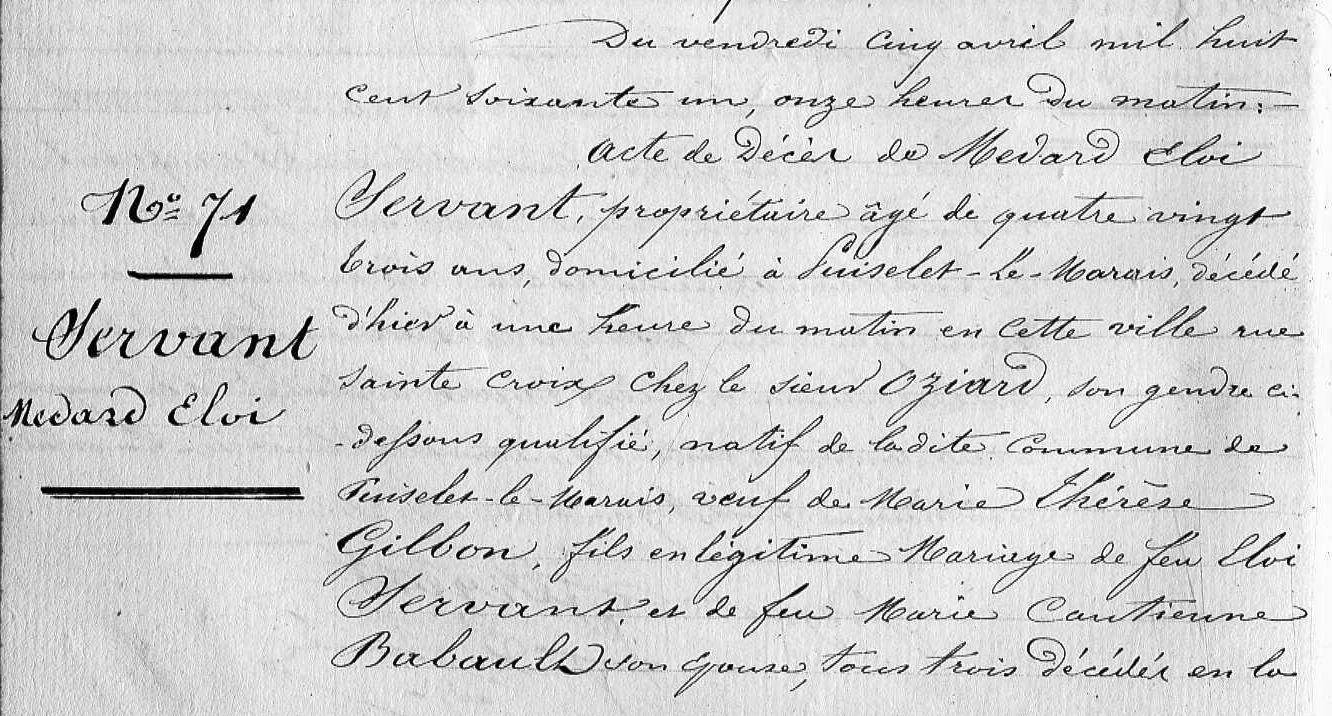 Du vendredi cinq avril mil huit
cent soixante un, onze heures du matin :
Acte de Décès de Medard Eloi
Servant, propriétaire âgé de quatre vingt
trois ans, domicilié à Puiselet-le-Marais, décédé
d'hier à une heure du matin en cette ville rue
sainte Croix chez le sieur Oziard, son gendre ci-
-dessous qualifié, natif de ladite commune de
Puiselet-le-Marais, veuf de Marie Thérèse
Gilbon, fils en légitime Mariage de feu Eloi
Servant, et de feu Marie Cantienne
Babault son epouse, tous trois décédés en la
No. 71
Servant
Medard Eloi